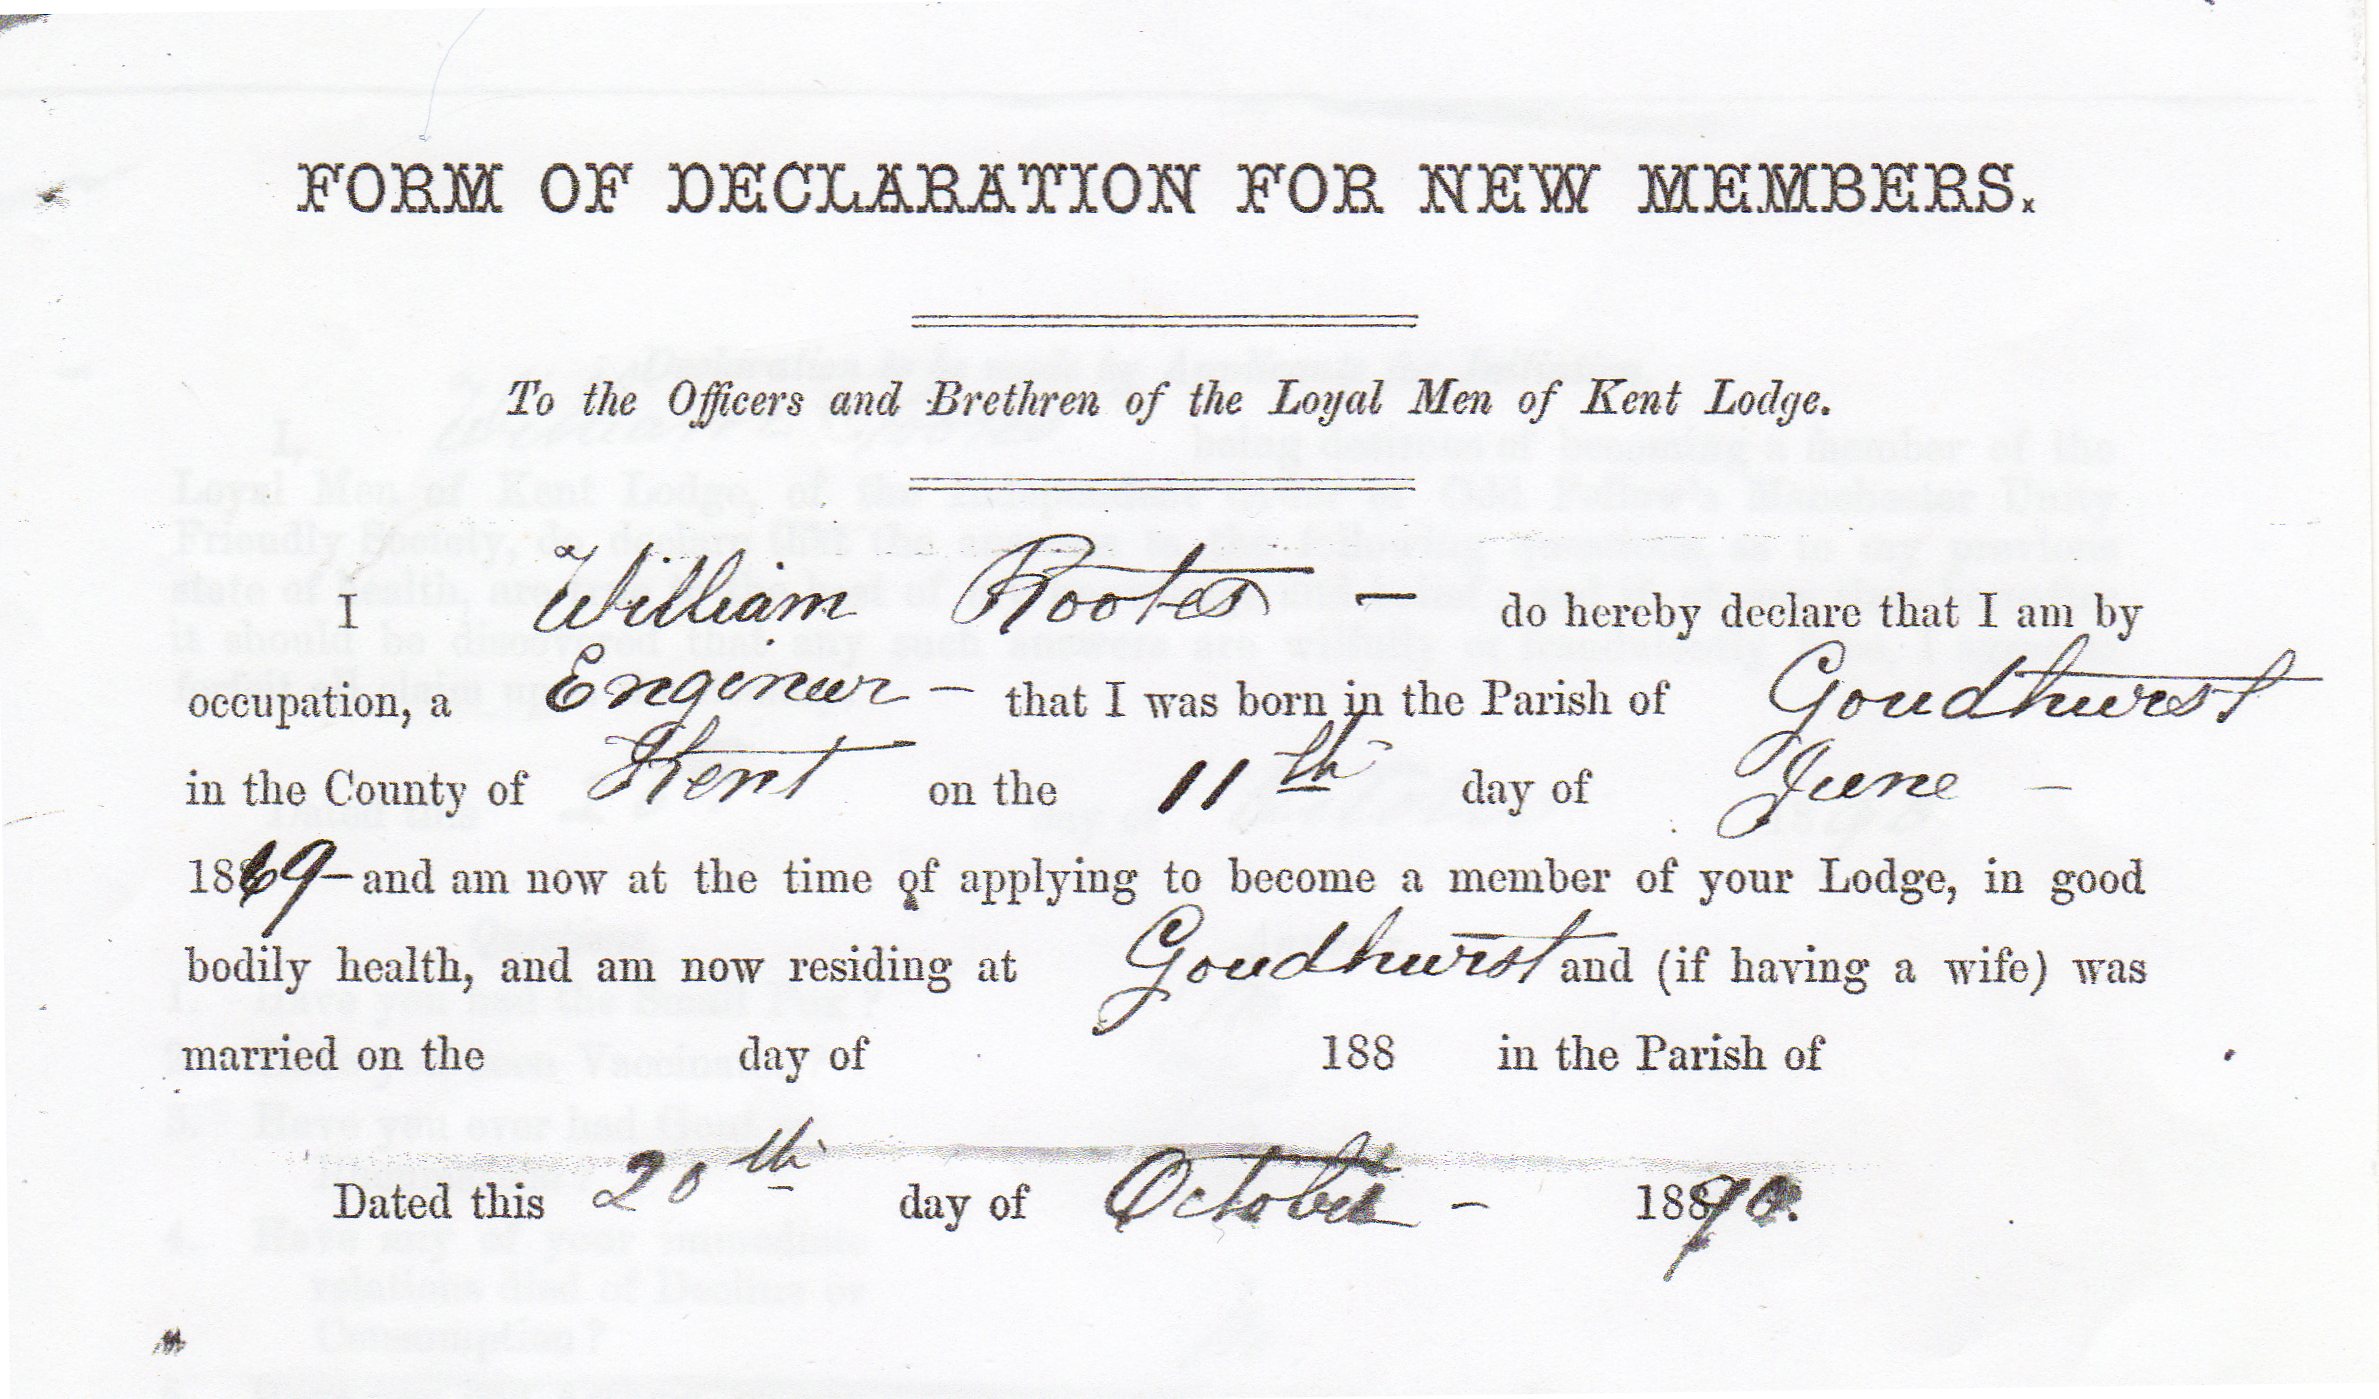 FORM OF DECLARATION FOR NEW MEMBERS.
To the Officers and Brethren of the Loyal Men of Kent Lodge.
I William Rootes - do hereby declare that I am by
occupation, a Engineer - that I was born in the Parish of Goudhurst
in the County of Kent on the 11th day of June -
1869 - and am now at the time of applying to become a member of your Lodge, in good
bodily health, and am now residing at Goudhurst and (if having a wife) was
married on the day of 188 in the Parish of .
Dated this 20th day of October - 1890.